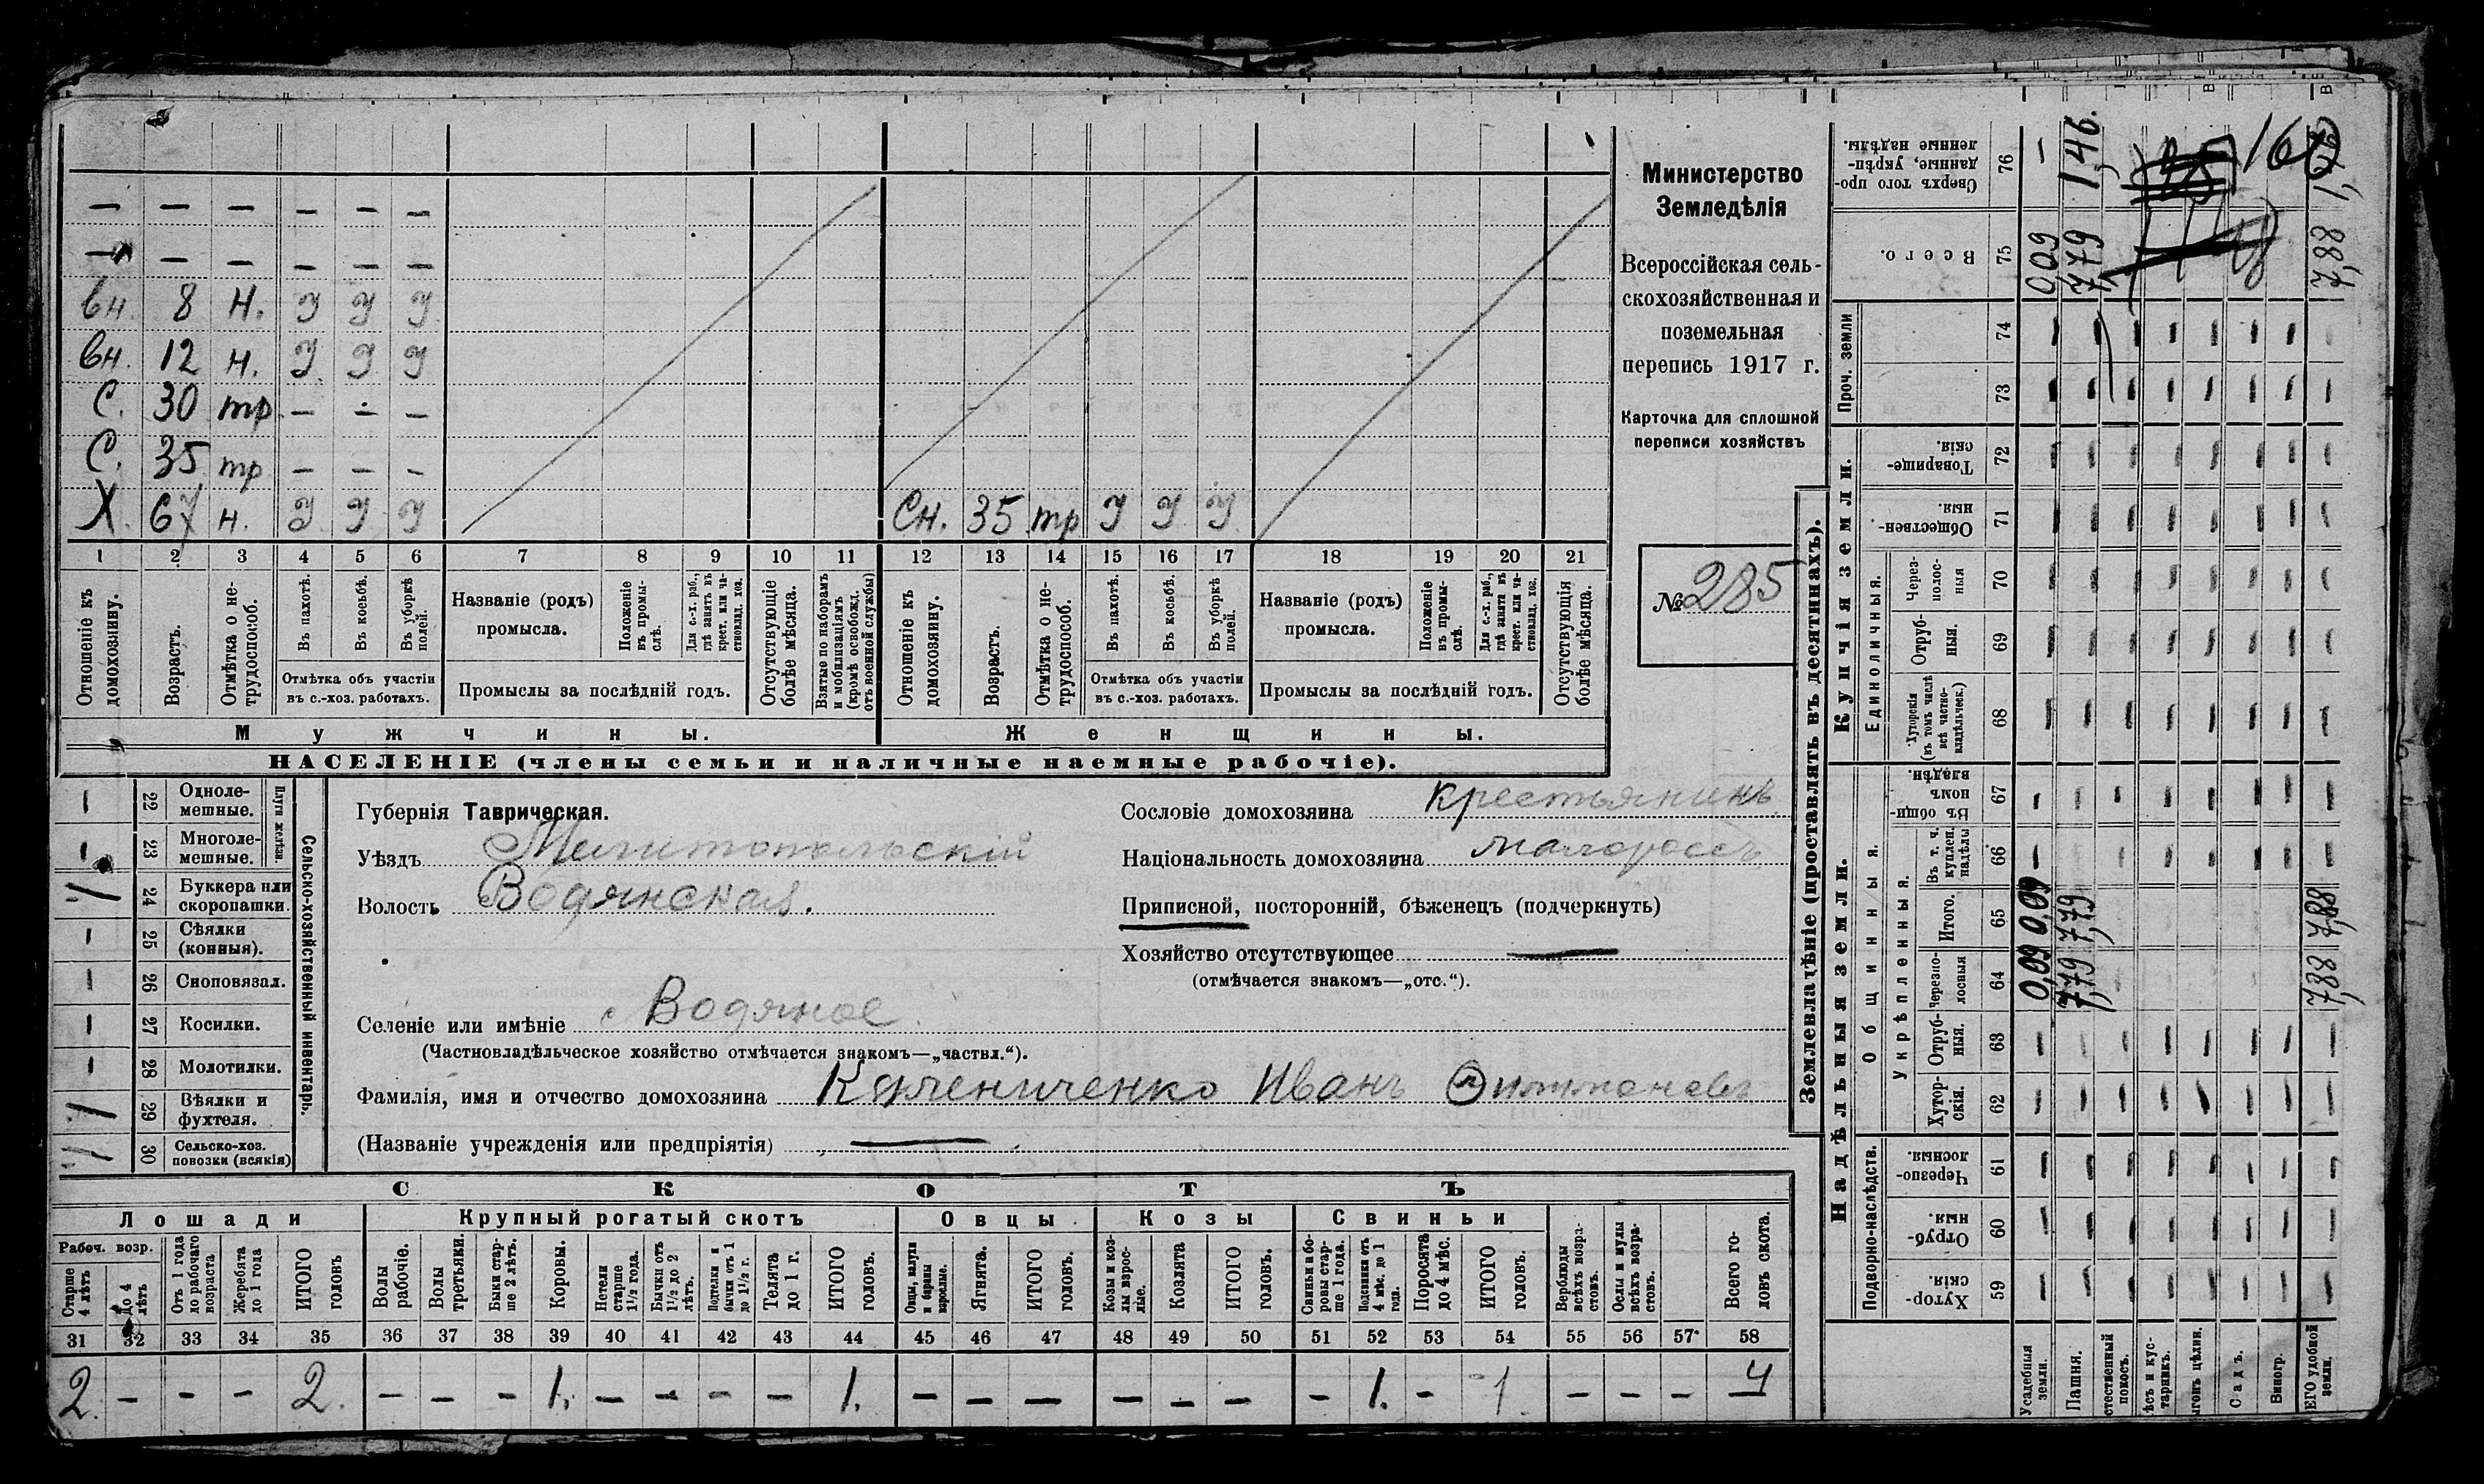 — — — — — —
— — — — — —
вн. 8 н. У У У
вн. 12 н. У У У
С. 30 тр — — —
С. 35 тр — — —
Х. 67 н. У У У Сн. 35 тр У У У
1 2 3 4 5 6 7 8 9 10 11 12 13 14 15 16 17 18 19 20 21
Отношеніе къ домохозяину.
Возрастъ.
Отмѣтка о не-трудоспособ.
Въ пахотѣ.
Въ косьбѣ.
Въ уборкѣ полей.
Отмѣтка объ участіи
въ с.-хоз. работахъ.
Названіе (родъ)
промысла.
Положеніе въ промы-слѣ.
Для с.-х. раб., гдѣ занятъ въ крест. или ча-стновлад. хоз.
Промыслы за послѣдній годъ.
Отсутствующіе болѣе мѣсяца.
Взятые по наборамъ и мобилизаціямъ (кромѣ освобожд. отъ военной службы)
Отношеніе къ домохозяину.
Возрастъ.
Отмѣтка о не-трудоспособ.
Въ пахотѣ.
Въ косьбѣ.
Въ уборкѣ полей.
Отмѣтка объ участіи
въ с.-хоз. работахъ.
Названіе (родъ)
промысла.
Положеніе въ промы-слѣ.
Для с.-х. раб., гдѣ занята въ крест. или ча-стновлад. хоз.
Промыслы за послѣдній годъ.
Отсутствующія болѣе мѣсяца.
Мужчины. Женщины.
НАСЕЛЕНІЕ (члены семьи и наличные наемные рабочіе).
Министерство
Земледѣлія
Всероссійская сель-
скохозяйственная и
поземельная
перепись 1917 г.
Карточка для сплошной
переписи хозяйствъ
№ 285
22 Одноле-мешные.
23 Многоле-мешные.
Плуги желѣз.
24 Буккера или скоропашки.
25 Сѣялки (конныя).
26 Сноповязал.
27 Косилки.
28 Молотилки.
29 Вѣялки и фухтеля.
30 Сельско-хоз. повозки (всякія)
Сельско-хозяйственный инвентарь.
Губернія Таврическая.
Уѣздъ Мелитопольскій
Волость Водянская.
Селеніе или имѣніе с Водяное
(Частновладѣльческое хозяйство отмѣчается знакомъ—„частвл.“).
Фамилія, имя и отчество домохозяина Иванъ
(Названіе учрежденія или предпріятія) —
Сословіе домохозяина крестьянинъ
Національность домохозяина малороссъ
Приписной, посторонній, бѣженецъ (подчеркнуть)
Хозяйство отсутствующее —
(отмѣчается знакомъ—„отс.“).
СКОТЪ
Лошади Крупный рогатый скотъ Овцы Козы Свиньи
Рабоч. возр.
Старше 4 лѣтъ
до 4 лѣтъ
Отъ 1 года до рабочаго возраста
Жеребята до 1 года
ИТОГО головъ
Волы рабочіе.
Волы третьяки.
Быки стар-ше 2 лѣтъ.
Коровы.
Нетели старше 1½ года.
Бычки отъ 1½ до 2 лѣтъ.
Подтелки и бычки отъ 1 до 1½ г.
Телята до 1 г.
ИТОГО головъ.
Овцы, валухи и бараны взрослые.
Ягнята.
ИТОГО головъ.
Козы и коз-лы взрос-лые.
Козлята
ИТОГО головъ.
Свиньи бо-ровы стар-ше 1 года.
Подсвинки отъ 4 мѣс. до 1 года.
Поросята до 4 мѣс.
ИТОГО головъ.
Верблюды всѣхъ возра-стовъ.
Ослы и мулы всѣхъ возра-стовъ.
Всего го-ловъ скота.
31 32 33 34 35 36 37 38 39 40 41 42 43 44 45 46 47 48 49 50 51 52 53 54 55 56 57 58
2. — — — 2. — — — 1. — — — — 1. — — — — — — — 1. — 1 — — — 4
Землевладѣніе (проставлять въ десятинахъ).
Надѣльныя земли. Купчія земли.
Подворно-наслѣдств.
Общинныя.
Укрѣпленныя.
Единоличныя.
Проч. земли
Хутор-скія. 59
Отруб-ныя. 60
Черезпо-лосныя. 61
Хутор-скія. 62
Отруб-ныя. 63
Черезпо-лосныя 64 0,09 7,79 7,88
Итого. 65 0,09 7,79 7,88
Въ т. ч. куплен. надѣлы 66
Въ общин-номъ владѣн. 67
Хуторскія (въ томъ числѣ всѣ частно-владѣльческ.) 68
Отруб-ныя. 69
Через-полос-ныя 70
Обществен-ныя. 71
Товарище-скія. 72
73
74
Всего. 75 0,09 7,79 7,88
Сверхъ того про-данные, укрѣп-ленные надѣлы. 76 — 1,46.
Усадебныя земли.
Пашня.
стественный покосъ.
ѣсъ и кус-тарникъ.
ыгонъ цѣлин.
Садъ.
Виногр.
ЕГО удобной земли.